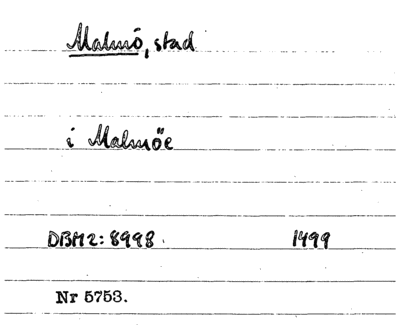 Malmö, stad
i Malmöe
DBM2: 8998. 1499
Nr 5753.